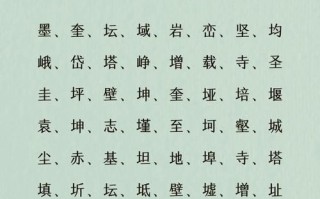 墨、奎、坛、域、岩、峦、坚、均
峨、岱、塔、峥、增、载、寺、圣
圭、坪、壁、坤、奎、垭、培、堰
袁、坤、志、墐、至、坷、壑、城
尘、赤、基、坦、地、埠、寺、塔
填、圻、坛、坻、壁、墟、增、址